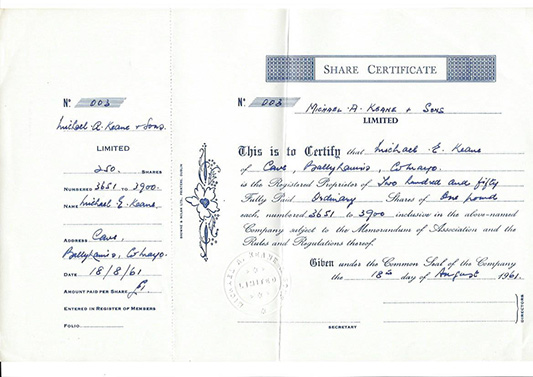 SHARE CERTIFICATE
No. 003
Michael A. Keane & Sons.
LIMITED
250. SHARES
NUMBERED 3651 to 3900.
NAME Michael E. Keane.
ADDRESS Cave,
Ballyhaunis, Co Mayo.
DATE 18/8/61
AMOUNT PAID PER SHARE £1
ENTERED IN REGISTER OF MEMBERS
FOLIO
No. 003 MICHAEL A. KEANE & SONS
LIMITED
This is to Certify that Michael E. Keane
of Cave, Ballyhaunis, Co Mayo.
is the Registered Proprietor of Two hundred and fifty
Fully Paid Ordinary Shares of One pound
each, numbered 3651 to 3900 inclusive in the above-named
Company subject to the Memorandum of Association and the
Rules and Regulations thereof.
Given under the Common Seal of the Company
the 18th day of August 1961.
LIMITED
DIRECTORS
SECRETARY